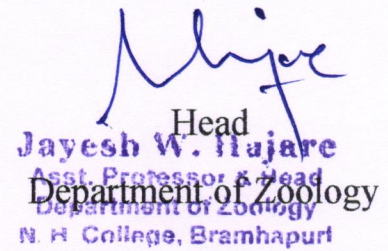 Head
Jayesh W. Hajare
Asst. Professor & Head
Department of Zoology
Department of Zoology
N. H College, Bramhapuri